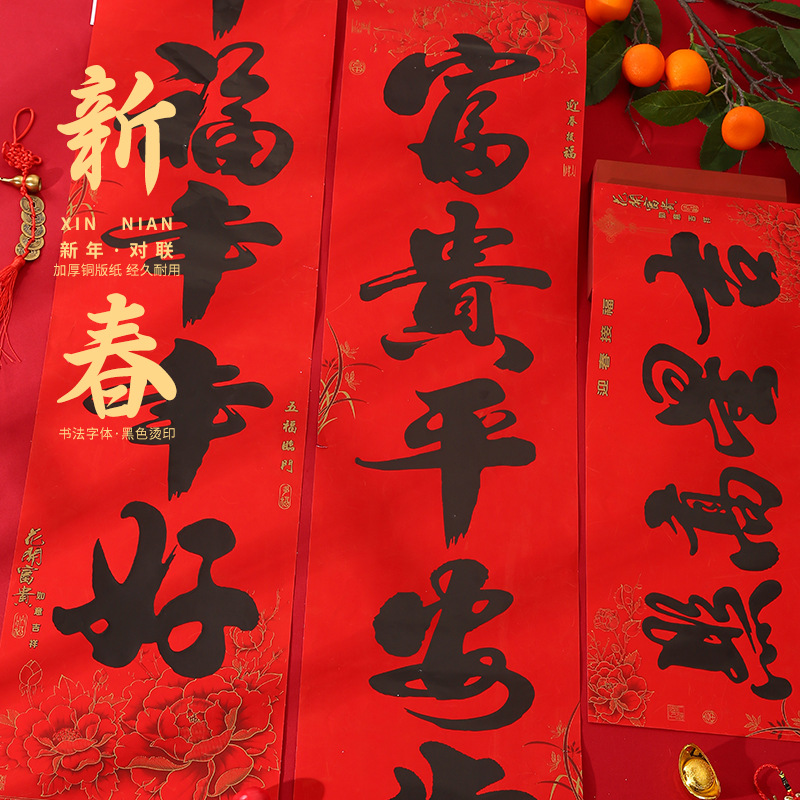 新
XIN NIAN
新年·对联
加厚铜版纸 经久耐用
春
书法字体·黑色烫印
福年年好
五福臨門
花開富貴
如意吉祥
富貴平安
迎春接福
吉星高照
花開富貴
如意吉祥
迎春接福